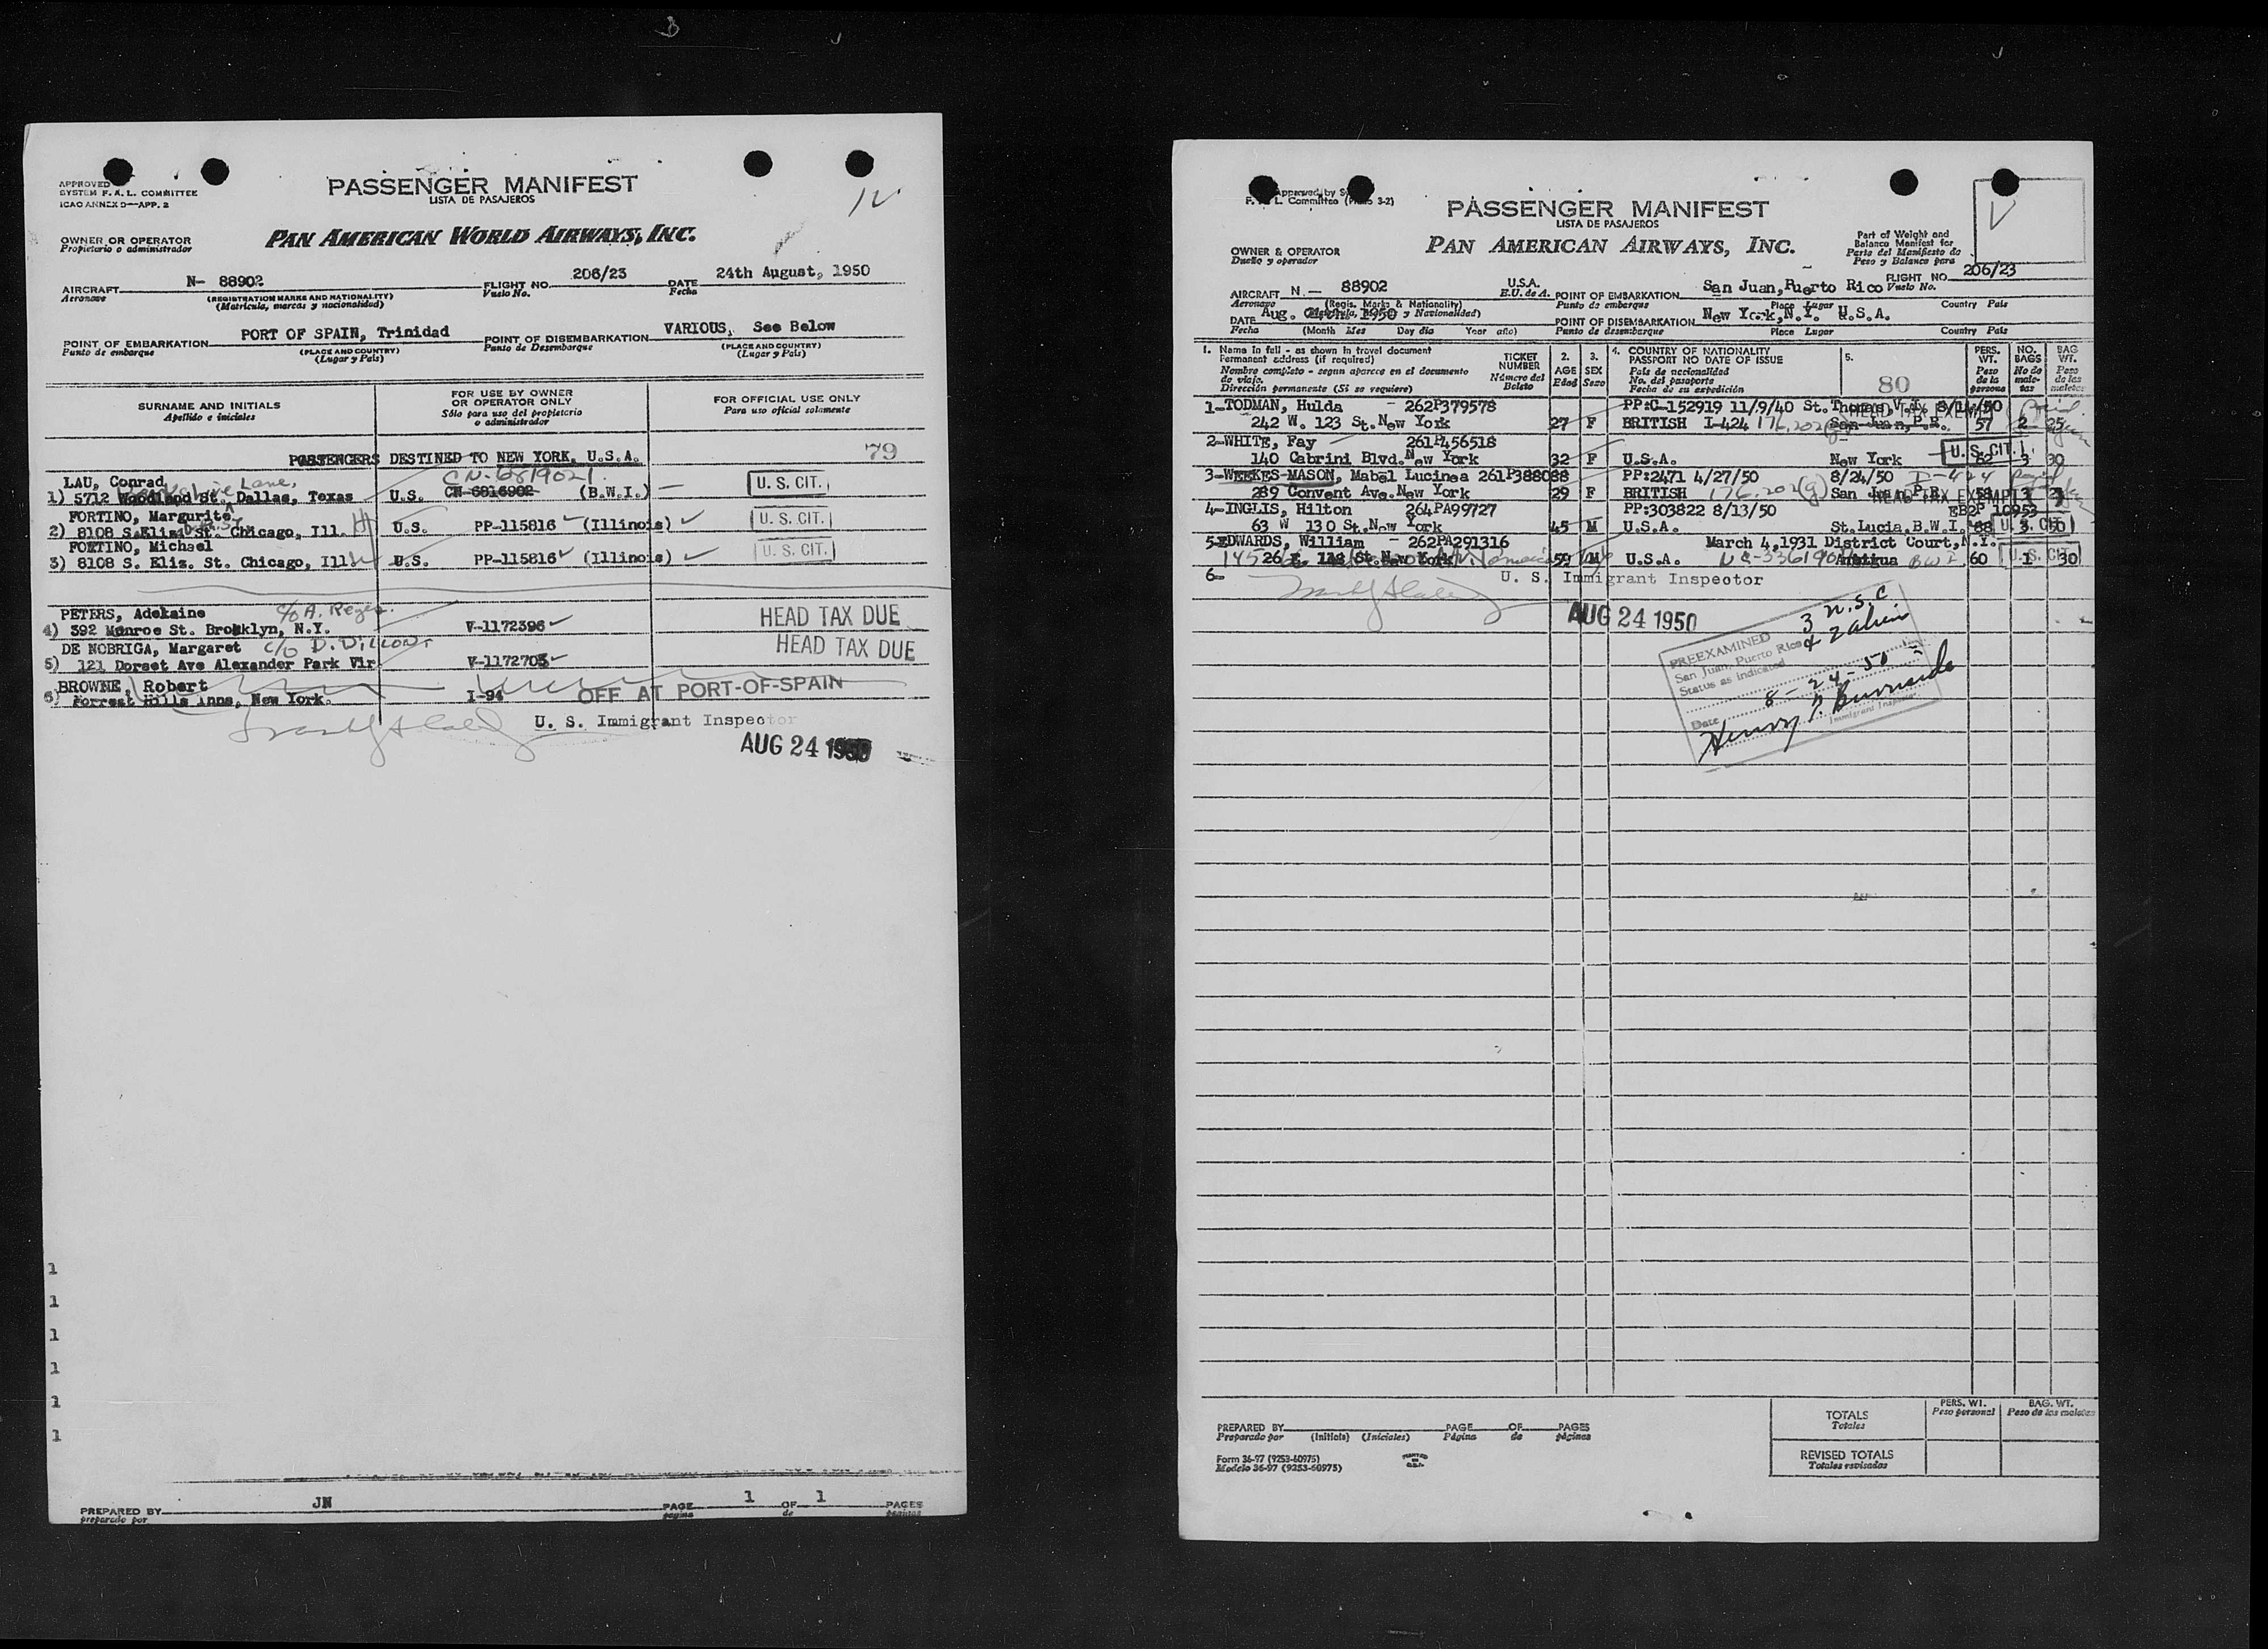 APPROVED
SYSTEM F. A. L. COMMITTEE
ICAO ANNEX 9—APP. 2
PASSENGER MANIFEST
LISTA DE PASAJEROS
OWNER OR OPERATOR
Propietario o administrador
PAN AMERICAN WORLD AIRWAYS, INC.
AIRCRAFT N- 88902 FLIGHT NO. 206/23 DATE 24th August, 1950
Aeronave (REGISTRATION MARKS AND NATIONALITY) Vuelo No. Fecha
(Matrícula, marcas y nacionalidad)
POINT OF EMBARKATION PORT OF SPAIN, Trinidad POINT OF DISEMBARKATION VARIOUS, See Below
Punto de embarque (PLACE AND COUNTRY) Punto de Desembarque (PLACE AND COUNTRY)
(Lugar y País) (Lugar y País)
SURNAME AND INITIALS
Apellido e iniciales
FOR USE BY OWNER
OR OPERATOR ONLY
Sólo para uso del propietario
o administrador
FOR OFFICIAL USE ONLY
Para uso oficial solamente
79
PASSENGERS DESTINED TO NEW YORK, U.S.A.
CN-6819021
LAU, Conrad Lane,
1) 5712 Woodland St. Dallas, Texas U.S. CN-6816902 (B.W.I.) U. S. CIT.
FORTINO, Margurite
2) 8108 S. St. Chicago, Ill. U.S. PP-115816 (Illinois) U. S. CIT.
FORTINO, Michael
3) 8108 S. Elis. St. Chicago, Ill U.S. PP-115816 (Illinois) U. S. CIT.
PETERS, Adekaine c/o A. Reyes.
4) 392 Monroe St. Brooklyn, N.Y. V-1172396 HEAD TAX DUE
DE NOBRIGA, Margaret c/o D. Dillon
5) 121 Dorset Ave Alexander Park Vir V-1172703 HEAD TAX DUE
BROWNE, Robert
6) Forrest Hills Inns, New York. I-94 OFF AT PORT-OF-SPAIN
U. S. Immigrant Inspector
AUG 24 1950
1
1
1
1
1
1
PREPARED BY JN PAGE 1 OF 1 PAGES
preparado por página de páginas
Approved by
F. A. L. Committee 3-2)
PASSENGER MANIFEST
LISTA DE PASAJEROS
OWNER & OPERATOR
Dueño y operador
PAN AMERICAN AIRWAYS, INC.
Part of Weight and
Balance Manifest for
Parte del Manifiesto de
Peso y Balance para
FLIGHT NO. 206/23
Vuelo No.
AIRCRAFT N — 88902 U.S.A. POINT OF EMBARKATION San Juan, Puerto Rico
Aeronave (Regis. Marks & Nationality) E.U. de A. Punto de embarque Place Lugar Country País
DATE Aug. 1950 POINT OF DISEMBARKATION New York, N.Y. U.S.A.
Fecha (Month Mes Day día Year año) Punto de desembarque Place Lugar Country País
1. Name in full - as shown in travel document
Permanent address (if required)
Nombre completo - segun aparece en el documento
de viaje.
Dirección permanente (Si se requiere)
TICKET
NUMBER
Número del
Boleto
2.
AGE
Edad
3.
SEX
Sexo
4. COUNTRY OF NATIONALITY
PASSPORT NO DATE OF ISSUE
País de nacionalidad
No. del pasaporte
Fecha de su expedición
5.
80
PERS.
WT.
Peso
de la
persona
NO.
BAGS
No de
male-
tas
BAG
WT.
Peso
de las
maletas
1-TODMAN, Hulda - 262P379578 PP:C-152919 11/9/40 St. Thomas, V.I. 8/11/50
242 W. 123 St. New York 27 F BRITISH I-424 San Juan, P.R. 57 2 25
2-WHITE, Fay 261P456518 U. S. CIT.
140 Cabrini Blvd. New York 32 F U.S.A. New York 3 30
3-WEEKES-MASON, Mabel Lucinea 261P388088 PP:2471 4/27/50 8/24/50 I-424
289 Convent Ave. New York 29 F BRITISH 176.202(g) San Juan, P.R. HEAD TAX EXEMPT
4-INGLIS, Hilton 264PA99727 PP:303822 8/13/50 EB2P 10953
63 W 130 St. New York 45 M U.S.A. St. Lucia, B.W.I. U. S. CIT.
5-EDWARDS, William - 262PA291316 March 4, 1931 District Court, N.Y.
26 St. New York 59 M U.S.A. Antigua BWI 60 1 30 U. S. CIT.
6-
U. S. Immigrant Inspector
AUG 24 1950
PREEXAMINED 3 U.S.C.
San Juan, Puerto Rico & 2 alien
Status as indicated
Date 8-24-50
Henry
Immigrant Inspector
PREPARED BY PAGE OF PAGES
Preparado por (Initials) (Iniciales) Página de páginas
Form 36-97 (9253-60975)
Modelo 36-97 (9253-60975)
PRINTED
IN
U.S.A.
PERS. WT.
Peso personal
BAG. WT.
Peso de las maletas
TOTALS
Totales
REVISED TOTALS
Totales revisados